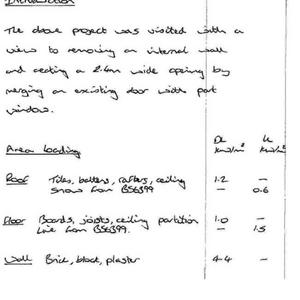 Introduction
The above project was visited with a
view to removing an internal wall
and creating a 2.4m wide opening by
merging an existing door with part
window.
Area Loading DL kN/m² LL kN/m²
Roof Tiles, battens, rafters, ceiling 1.2 -
Snow from BS6399 - 0.6
Floor Boards, joists, ceiling partition 1.0 -
Live from BS6399. - 1.5
Wall Brick, block, plaster 4.4 -